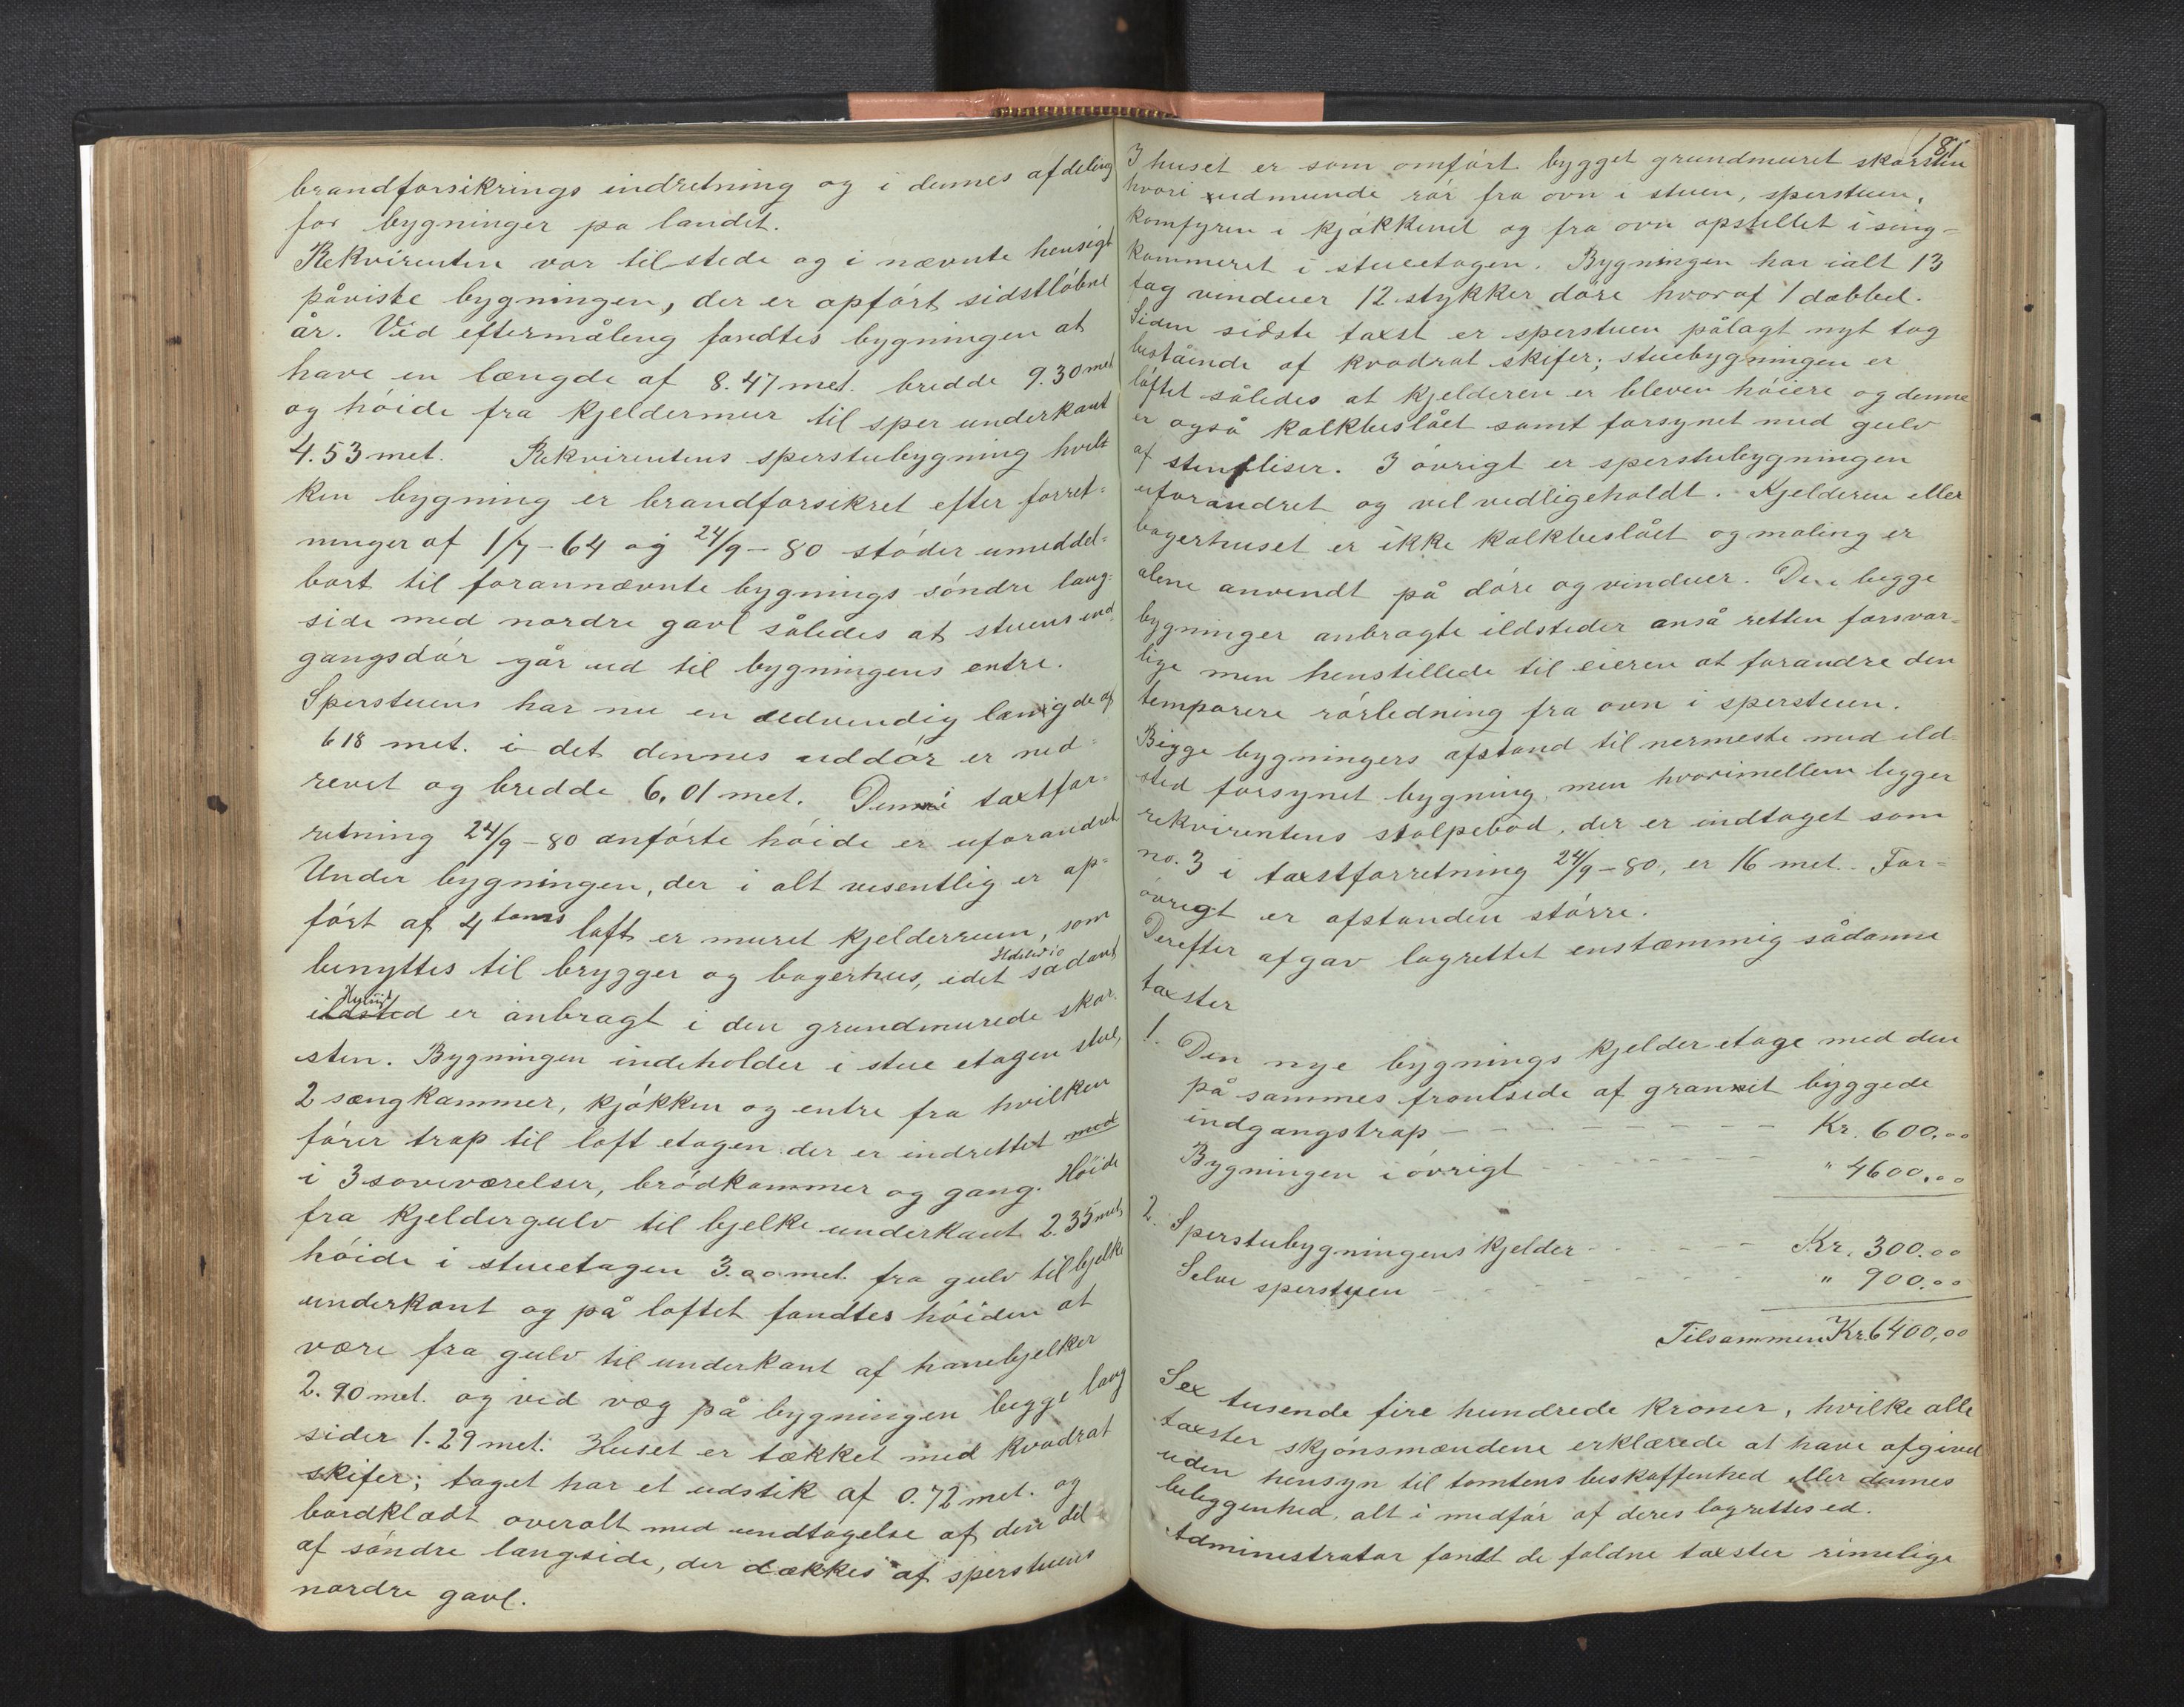 brandforsikrings indretning og i dennes afdeling
for bygninger pa landet.
Rekvirenten var tilstede og i nævnte hensigt
påviste bygningen, der er opført sidstløbne
år. Ved eftermåling fandtes bygningen at
have en længde af 8.47 met. bredde 9.30 met
og høide fra kjeldermur til sper underkant
4.53 met. Rekvirentens sperstubygning hvil
ken bygning er brandforsikret efter forret-
ninger af 1/7-64 og 24/9-80 støder umiddel-
bart til forannævnte bygnings søndre lang-
side med nordre gavl således at stuens ind
gangsdør går ud til bygningens entre.
Sperstuens har nu en udvendig længde af
618 met. i det dennes uddør er ned-
revet og bredde 6,01 met. Den i taxtfor-
retning 24/9-80 anførte høide er uforandret
Under bygningen, der i alt vesentlig er op-
ført af 4 toms laft er muret kjelderrum, som
benyttes til brygger og bagerhus, idet sådant
ildsted er anbragt i den grundmurede skor-
sten. Bygningen indeholder i stue etagen stue,
2 sængkammer, kjøkken og entre fra hvilken
fører trap til loft etagen der er indrettet med
i 3 soveværelser, brødkammer og gang. Høide
fra kjeldergulv til bjelke underkant 2.35 met,
høide i stueetagen 3.00 met. fra gulv til bjelke
underkant og på loftet fandtes høiden at
være fra gulv til underkant af hanebjelker
2.90 met. og ved væg på bygningen begge lang
sider 1.29 met. Huset er tækket med kvadrat
skifer; taget har et udstik af 0.72 met. og
bordklædt overalt med undtagelse af den del
af søndre langside, der dækkes af sperstuens
nordre gavl.
181
I huset er som omført bygget grundmuret skorsten
hvori udmunde rør fra ovn i stuen, sperstuen,
komfyren i kjøkkenet og fra ovn opstillet i seng-
kammeret i stueetagen. Bygningen har ialt 13
fag vinduer 12 stykker døre hvoraf 1 dobbel.
Siden sidste taxst er sperstuen pålagt nyt tag
bestående af kvadrat skifer; stuebygningen er
løftet således at kjelderen er bleven høiere og denne
er også kalkbeslået samt forsynet med gulv
af stenfliser. I øvrigt er sperstubygningen
uforandret og vel vedligeholdt. Kjelderen eller
bagerhuset er ikke kalkbeslået og maling er
alene anvendt på døre og vinduer. De i begge
bygninger anbragte ildsteder anså retten forsvar-
lige men henstillede til eieren at forandre den
temporere rørledning fra ovn i sperstuen.
Begge bygningers afstand til nermeste med ild-
sted forsynet bygning, men hvorimellem ligger
rekvirentens stolpebod, der er indtaget som
no. 3 i taxstforretning 24/9-80, er 16 met. For-
øvrigt er afstanden større.
Derefter afgav lagrettet enstæmmig sådanne
taxster
1. Den nye bygnings kjelder etage med den
på sammes frontside af granit byggede
indgangstrap - - - Kr. 600.00
Bygningen i øvrigt - - - " 4600.00
2. Sperstubygningens kjelder - - - Kr. 300.00
Selve sperstuen - - - " 900.00
Tilsammen Kr. 6400,00
Sex tusende fire hundrede kroner, hvilke alle
taxster skjønsmændene erklærede at have afgivet
uden hensyn til tomtens beskaffenhed eller dennes
beliggenhed, alt i medfør af deres lagrettesed.
Administrator fandt de faldne taxster rimelige